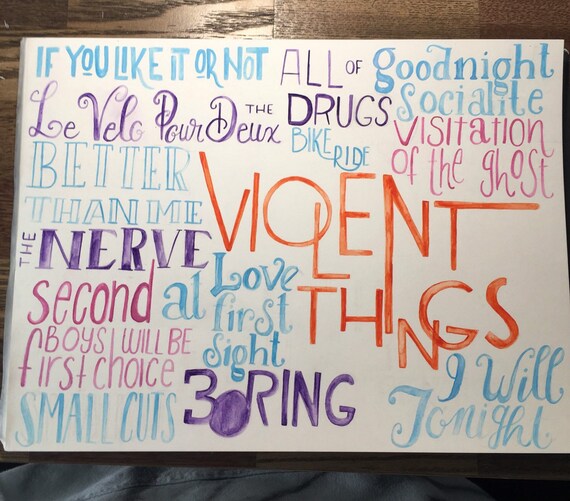 IF YOU LIKE IT OR NOT
ALL OF
THE DRUGS
goodnight
socialite
Le Velo Pour Deux
BIKE
RIDE
VISITATION
OF the ghost
BETTER
THAN ME
VIOLENT
THINGS
THE NERVE
second
BOYS WILL BE
first choice
Love
at first
sight
SMALL CUTS
BORING
I Will
Tonight